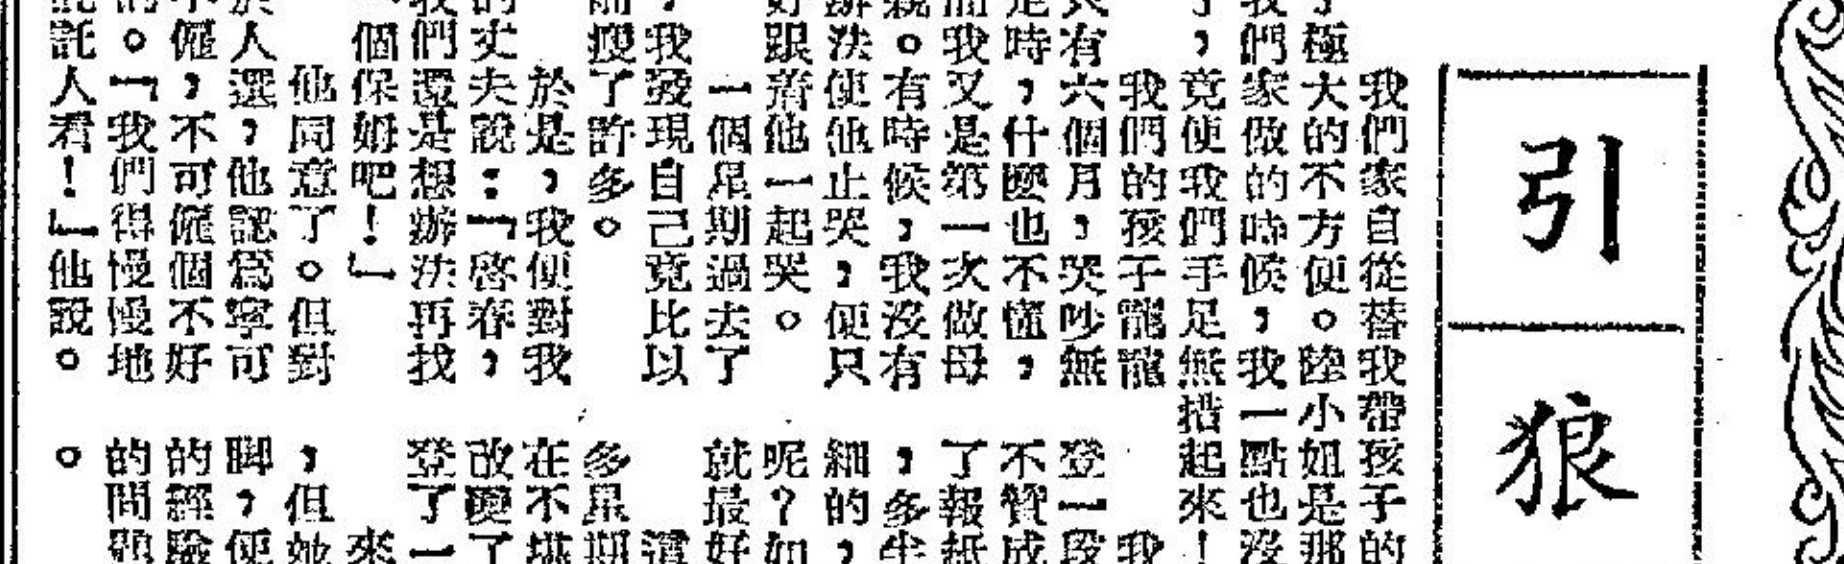 引狼
我們家自從替我帶孩子的
了極大的不方便。陸小姐是那
我們家做的時候，我一點也沒
了，竟使我們手足無措起來！
我們的孩子龍龍
只有六個月，哭吵無
是時，什麼也不懂，
而我又是第一次做母
親。有時候，我沒有
辦法使他止哭，便只
好跟着他一起哭。
一個星期過去了
，我發現自己竟比以
前瘦了許多。
於是，我便對我
的丈夫說：「啓春，
我們還是想辦法再找
個保姆吧！」
他同意了。但對
於人選，他認爲寧可
不僱，不可僱個不好
的。「我們得慢慢地
託託人看！」他說。
我
登一段
不贊成
了報紙
，多生
細的，
呢？如
就最好
這
多星期
在不堪
改變了
登了一
來
，但她
脚，便
的經驗
的問題
。